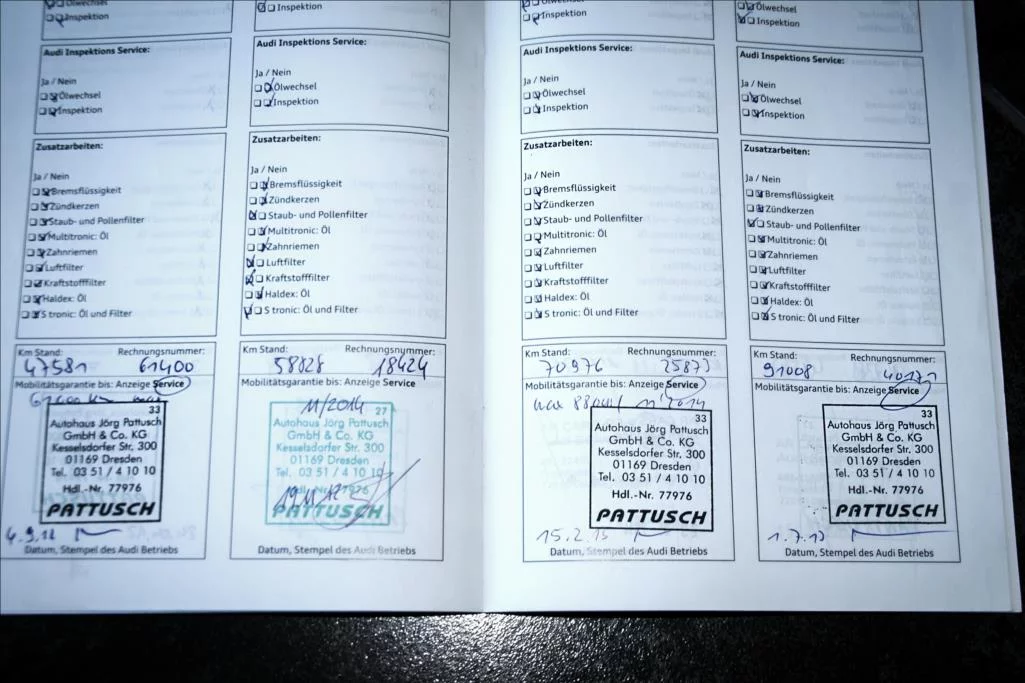 Inspektion
Audi Inspektions Service:
Ja / Nein
Ölwechsel
Inspektion
Zusatzarbeiten:
Ja / Nein
Bremsflüssigkeit
Zündkerzen
Staub- und Pollenfilter
Multitronic: Öl
Zahnriemen
Luftfilter
Kraftstofffilter
Haldex: Öl
S tronic: Öl und Filter
Km Stand: Rechnungsnummer:
47581 61400
Mobilitätsgarantie bis: Anzeige Service
33
Autohaus Jörg Pattusch
GmbH & Co. KG
Kesselsdorfer Str. 300
01169 Dresden
Tel. 03 51 / 4 10 10
Hdl.-Nr. 77976
PATTUSCH
4.9.12
Datum, Stempel des Audi Betriebs
Inspektion
Audi Inspektions Service:
Ja / Nein
Ölwechsel
Inspektion
Zusatzarbeiten:
Ja / Nein
Bremsflüssigkeit
Zündkerzen
Staub- und Pollenfilter
Multitronic: Öl
Zahnriemen
Luftfilter
Kraftstofffilter
Haldex: Öl
S tronic: Öl und Filter
Km Stand: Rechnungsnummer:
58828 18424
Mobilitätsgarantie bis: Anzeige Service
11/2014
27
Autohaus Jörg Pattusch
GmbH & Co. KG
Kesselsdorfer Str. 300
01169 Dresden
Tel. 03 51 / 4 10 10
Hdl.-Nr. 77976
19.11.12
PATTUSCH
Datum, Stempel des Audi Betriebs
Ölwechsel
Inspektion
Audi Inspektions Service:
Ja / Nein
Ölwechsel
Inspektion
Zusatzarbeiten:
Ja / Nein
Bremsflüssigkeit
Zündkerzen
Staub- und Pollenfilter
Multitronic: Öl
Zahnriemen
Luftfilter
Kraftstofffilter
Haldex: Öl
S tronic: Öl und Filter
Km Stand: Rechnungsnummer:
70976 25873
Mobilitätsgarantie bis: Anzeige Service
33
Autohaus Jörg Pattusch
GmbH & Co. KG
Kesselsdorfer Str. 300
01169 Dresden
Tel. 03 51 / 4 10 10
Hdl.-Nr. 77976
PATTUSCH
15.2.13
Datum, Stempel des Audi Betriebs
Ölwechsel
Inspektion
Audi Inspektions Service:
Ja / Nein
Ölwechsel
Inspektion
Zusatzarbeiten:
Ja / Nein
Bremsflüssigkeit
Zündkerzen
Staub- und Pollenfilter
Multitronic: Öl
Zahnriemen
Luftfilter
Kraftstofffilter
Haldex: Öl
S tronic: Öl und Filter
Km Stand: Rechnungsnummer:
91008 40171
Mobilitätsgarantie bis: Anzeige Service
33
Autohaus Jörg Pattusch
GmbH & Co. KG
Kesselsdorfer Str. 300
01169 Dresden
Tel. 03 51 / 4 10 10
Hdl.-Nr. 77976
PATTUSCH
1.7.13
Datum, Stempel des Audi Betriebs